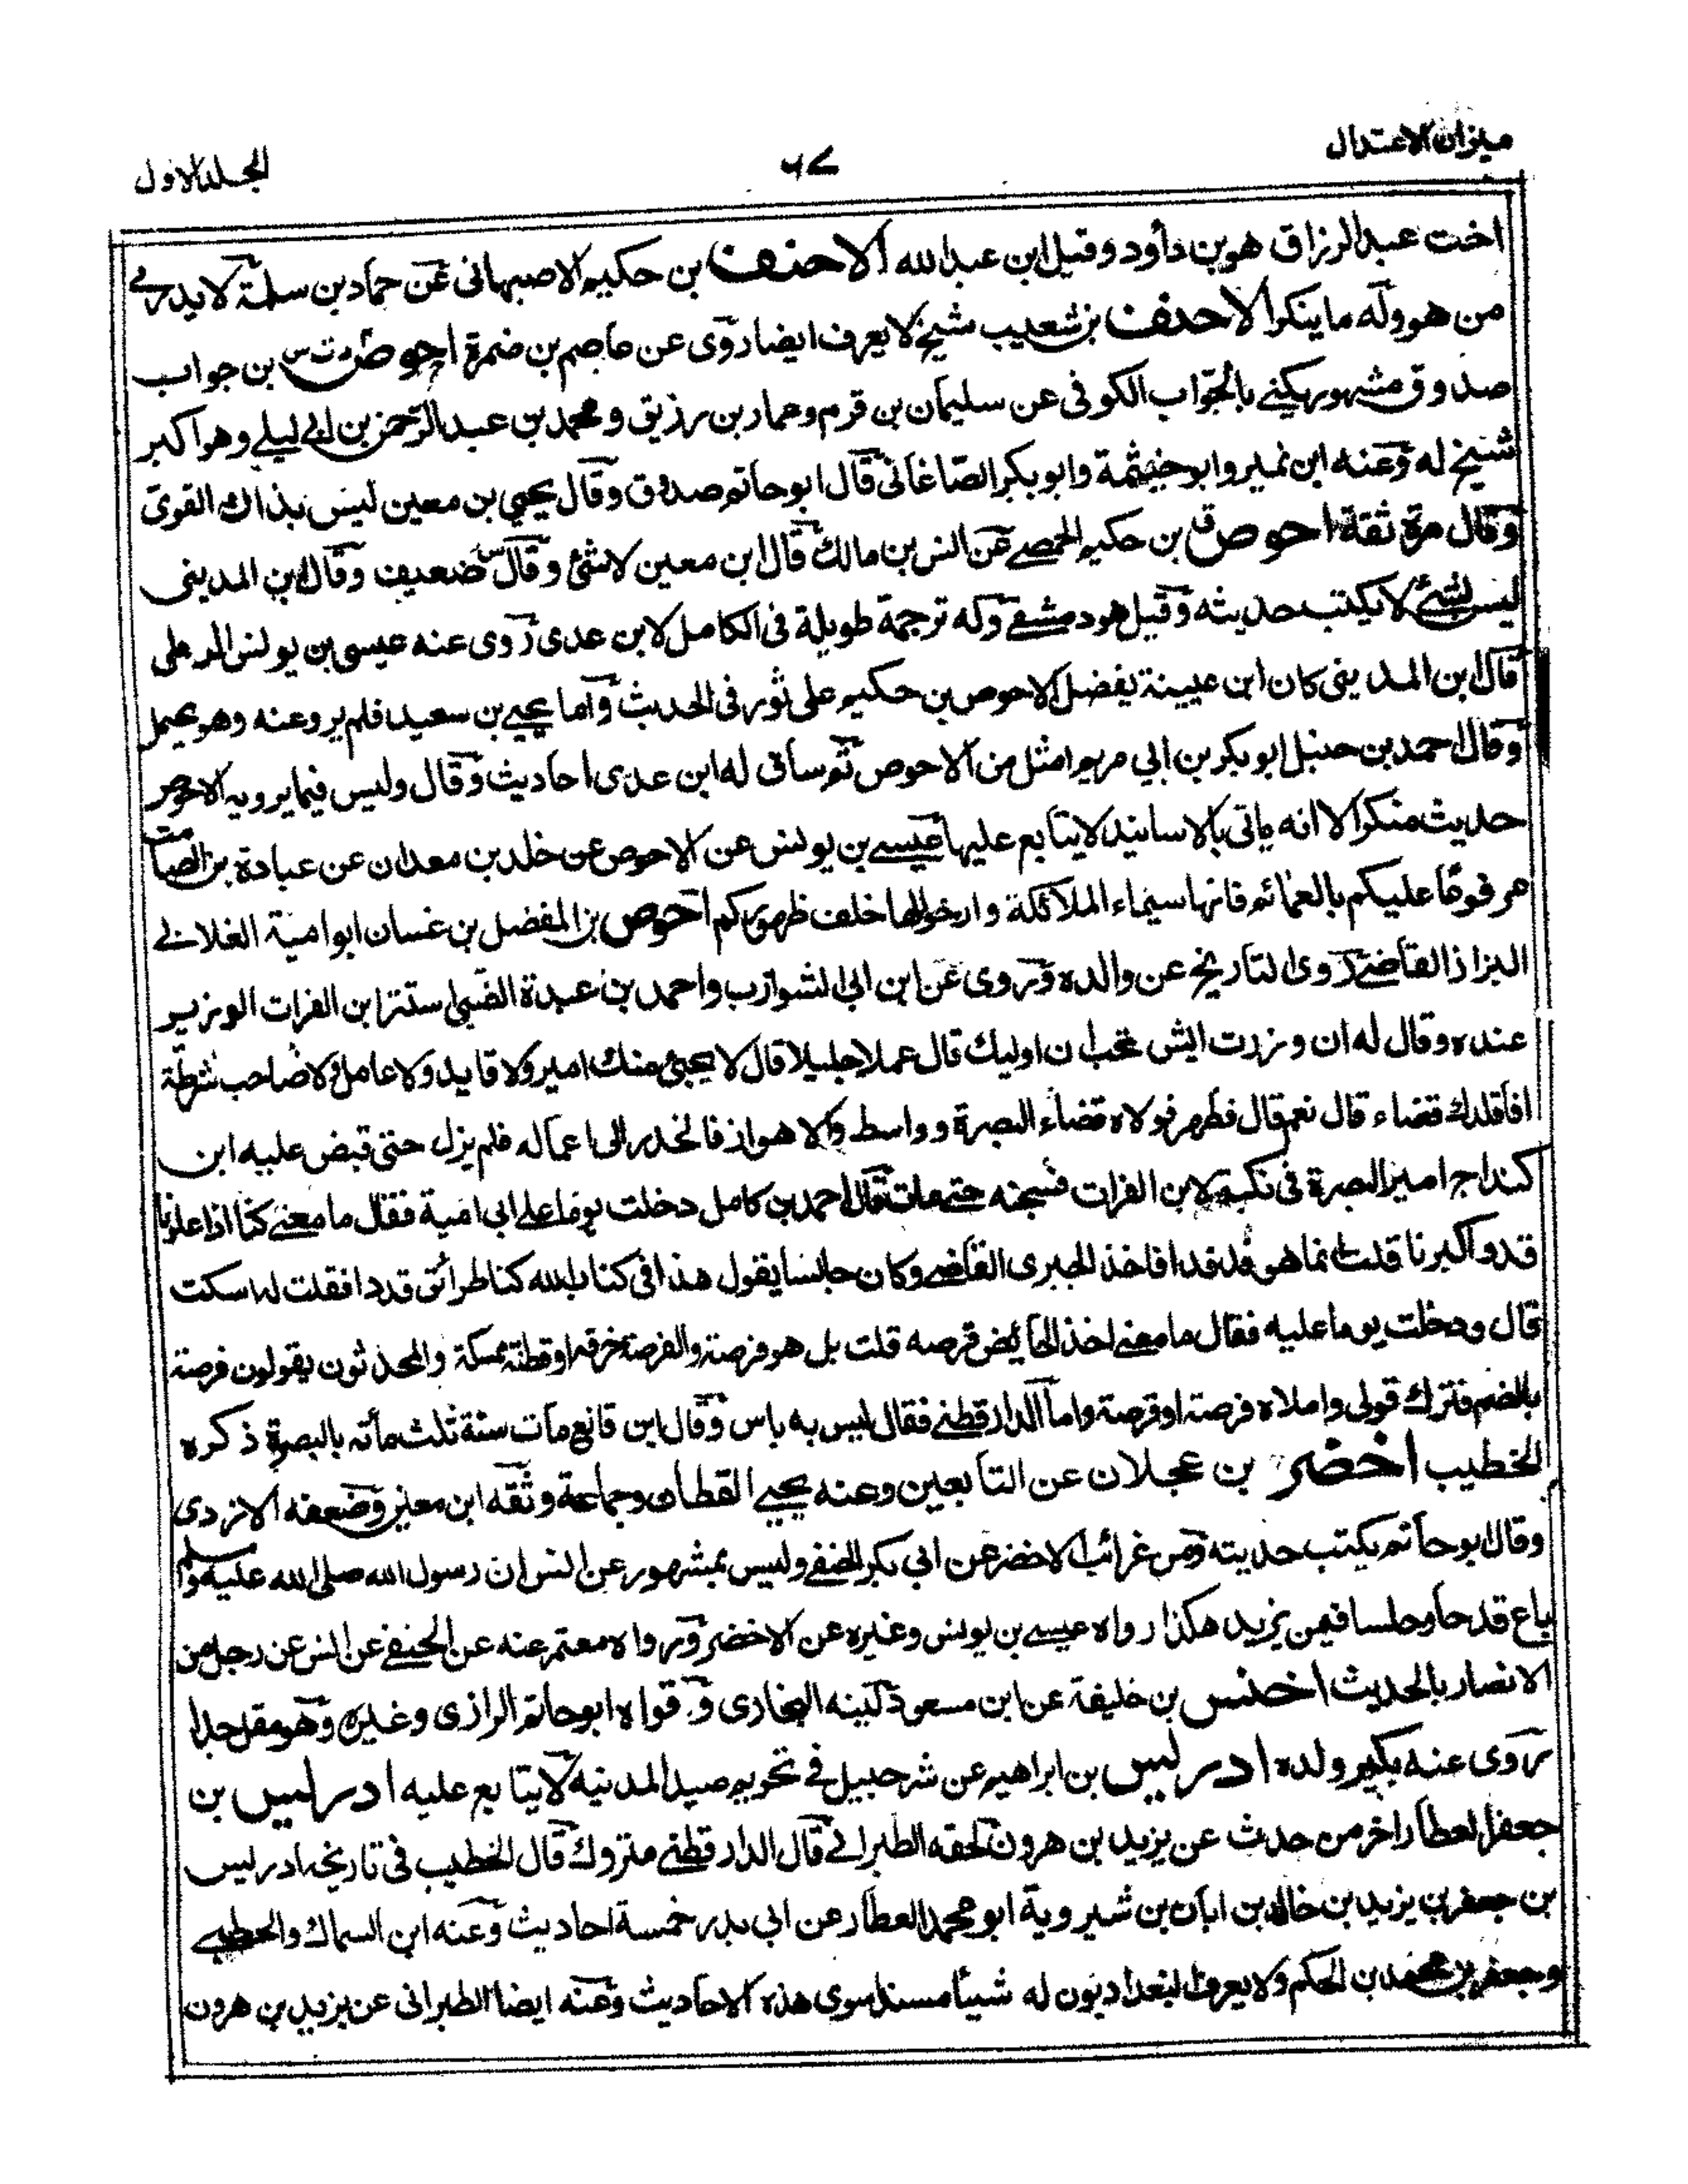 ميزان الاعتدال
٦٧
المجلد الاول
اخت عبد الرزاق هو بن داود وقيل ابن عبد الله الاحنف بن حكيم الاصبهانى عن حماد بن سلمة لا يدرى
من هو وله ما ينكر الاحنف بن شعيب شيخ لا يعرف ايضا روى عن عاصم بن ضمرة احوص بن جواب
صدوق مشهور يكنى بالجواب الكوفى عن سليمان بن قرم وعمار بن رزيق ومحمد بن عبد الرحمن بن ابى ليلى وهو اكبر
شيخ له وعنه ابن نمير وابو خيثمة وابو بكر الصاغانى قال ابو حاتم صدوق وقال يحيى بن معين ليس بذاك القوى
وقال مرة ثقة احوص ق بن حكيم الحمصى عن انس بن مالك قال ابن معين لا شئ وقال س ضعيف وقال ابن المدينى
ليس بشئ لا يكتب حديثه وقيل هو دمشقى وله ترجمة طويلة فى الكامل لابن عدى روى عنه عيسى بن يونس
قال ابن المدينى كان ابن عيينة يفضل الاحوص بن حكيم على ثور فى الحديث واما يحيى بن سعيد فلم يرو عنه وهو يحتمل
وقال احمد بن حنبل ابو بكر بن ابي مريم امثل من الاحوص ثم ساق له ابن عدى احاديث وقال وليس فيما يرويه الاحوص
حديث منكر الا انه ياتى بالاسانيد لا يتابع عليها عيسى بن يونس عن الاحوص عن خلد بن معدان عن عبادة بن الصامت
مرفوعا عليكم بالعمائم فانها سيماء الملائكة وارخوا لها خلف ظهوركم احوص بن المفضل بن غسان ابو امية الغلابى
البزاز القاضى روى التاريخ عن والده وروى عن ابن ابى الشوارب واحمد بن عبدة الضبى استتر ابن الفرات الوزير
عنده وقال له ان وزرت ايش تحب ان اوليك قال عملا جليلا قال لا يجئ منك امير ولا قايد ولا عامل ولا صاحب شرطة
افاقلدك قضاء قال نعم قال فظهر فولاه قضاء البصرة وواسط والاهواز فانحدر الى اعماله فلم يزل حتى قبض عليه ابن
كنداج امير البصرة فى نكبة لابن الفرات فسجنه حتى مات قال احمد بن كامل دخلت يوما على ابى امية فقال ما معنى كنا اذا علونا
قدد اكبرنا قلت انما هى فدفدا فاخذ الجبرى القاضى وكان جالسا يقول هذا فى كتاب الله كنا طرائق قددا فقلت له اسكت
قال ودخلت يوما عليه فقال ما معنى اخذ الحائض قرصه قلت بل هو فرصة والفرصة خرقة او قطنة ممسكة والمحدثون يقولون فرصة
بالضم فترك قولى واملاه فرصة او قرصة واما الدارقطنى فقال ليس به باس وقال ابن قانع مات سنة ثلث مأته بالبصرة ذكره
الخطيب اخضر بن عجلان عن التابعين وعنه يحيى القطان وجماعة وثقه ابن معين وضعفه الازدى
وقال ابو حاتم يكتب حديثه ومن غرائب الاخضر عن ابى بكر الحنفى وليس بمشهور عن انس ان رسول الله صلى الله عليه وسلم
باع قدحا وحلسا فيمن يزيد هكذا رواه عيسى بن يونس وغيره عن الاخضر ورواه معتمر عنه عن الحنفى عن انس عن رجل من
الانصار بالحديث اخنس بن خليفة عن ابن مسعود لينه البخارى وقواه ابو حاتم الرازى وغيره وهو مقل جدا
روى عنه بكير ولده ادريس بن ابراهيم عن شرحبيل فى تحريم صيد المدنية لا يتابع عليه ادريس بن
جعفر العطار اخر من حدث عن يزيد بن هرون لحقه الطبرانى قال الدارقطنى متروك قال الخطيب فى تاريخه ادريس
بن جعفر بن يزيد بن خالد بن ابان بن شيروية ابو محمد العطار عن ابى بدر خمسة احاديث وعنه ابن السماك والخطبى
وجعفر بن محمد بن الحكم ولا يعرف البغداديون له شيأ مسندا سوى هذه الاحاديث وعنه ايضا الطبرانى عن يزيد بن هرون